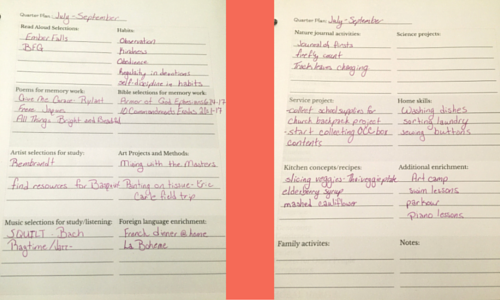 Quarter Plan: July - September
Read Aloud Selections:
Ember Falls
BFG
Habits:
Observation
Kindness
Obedience
Regularity in devotions
self discipline in habits
Poems for memory work:
All Things Bright and Beautiful
Bible selections for memory work:
Armor of God Ephesians 6:14-17
10 Commandments Exodus 20:1-17
Artist selections for study:
Rembrandt
find resources for
Art Projects and Methods:
with the Masters
Painting on tissue - Eric
Carle field trip
Music selections for study/listening:
SQUILT - Bach
Ragtime/Jazz
Foreign language enrichment:
French dinner @ home
La Boheme
Quarter Plan: July - September
Nature journal activities:
Journal of firsts
firefly count
Track leaves changing
Science projects:
Service project:
collect school supplies for
church backpack project
- start collecting OCC box
contents
Home skills:
Washing dishes
sorting laundry
sewing buttons
Kitchen concepts/recipes:
slicing veggies
elderberry syrup
mashed cauliflower
Additional enrichment:
Art camp
swim lessons
parkour
piano lessons
Family activites:
Notes: